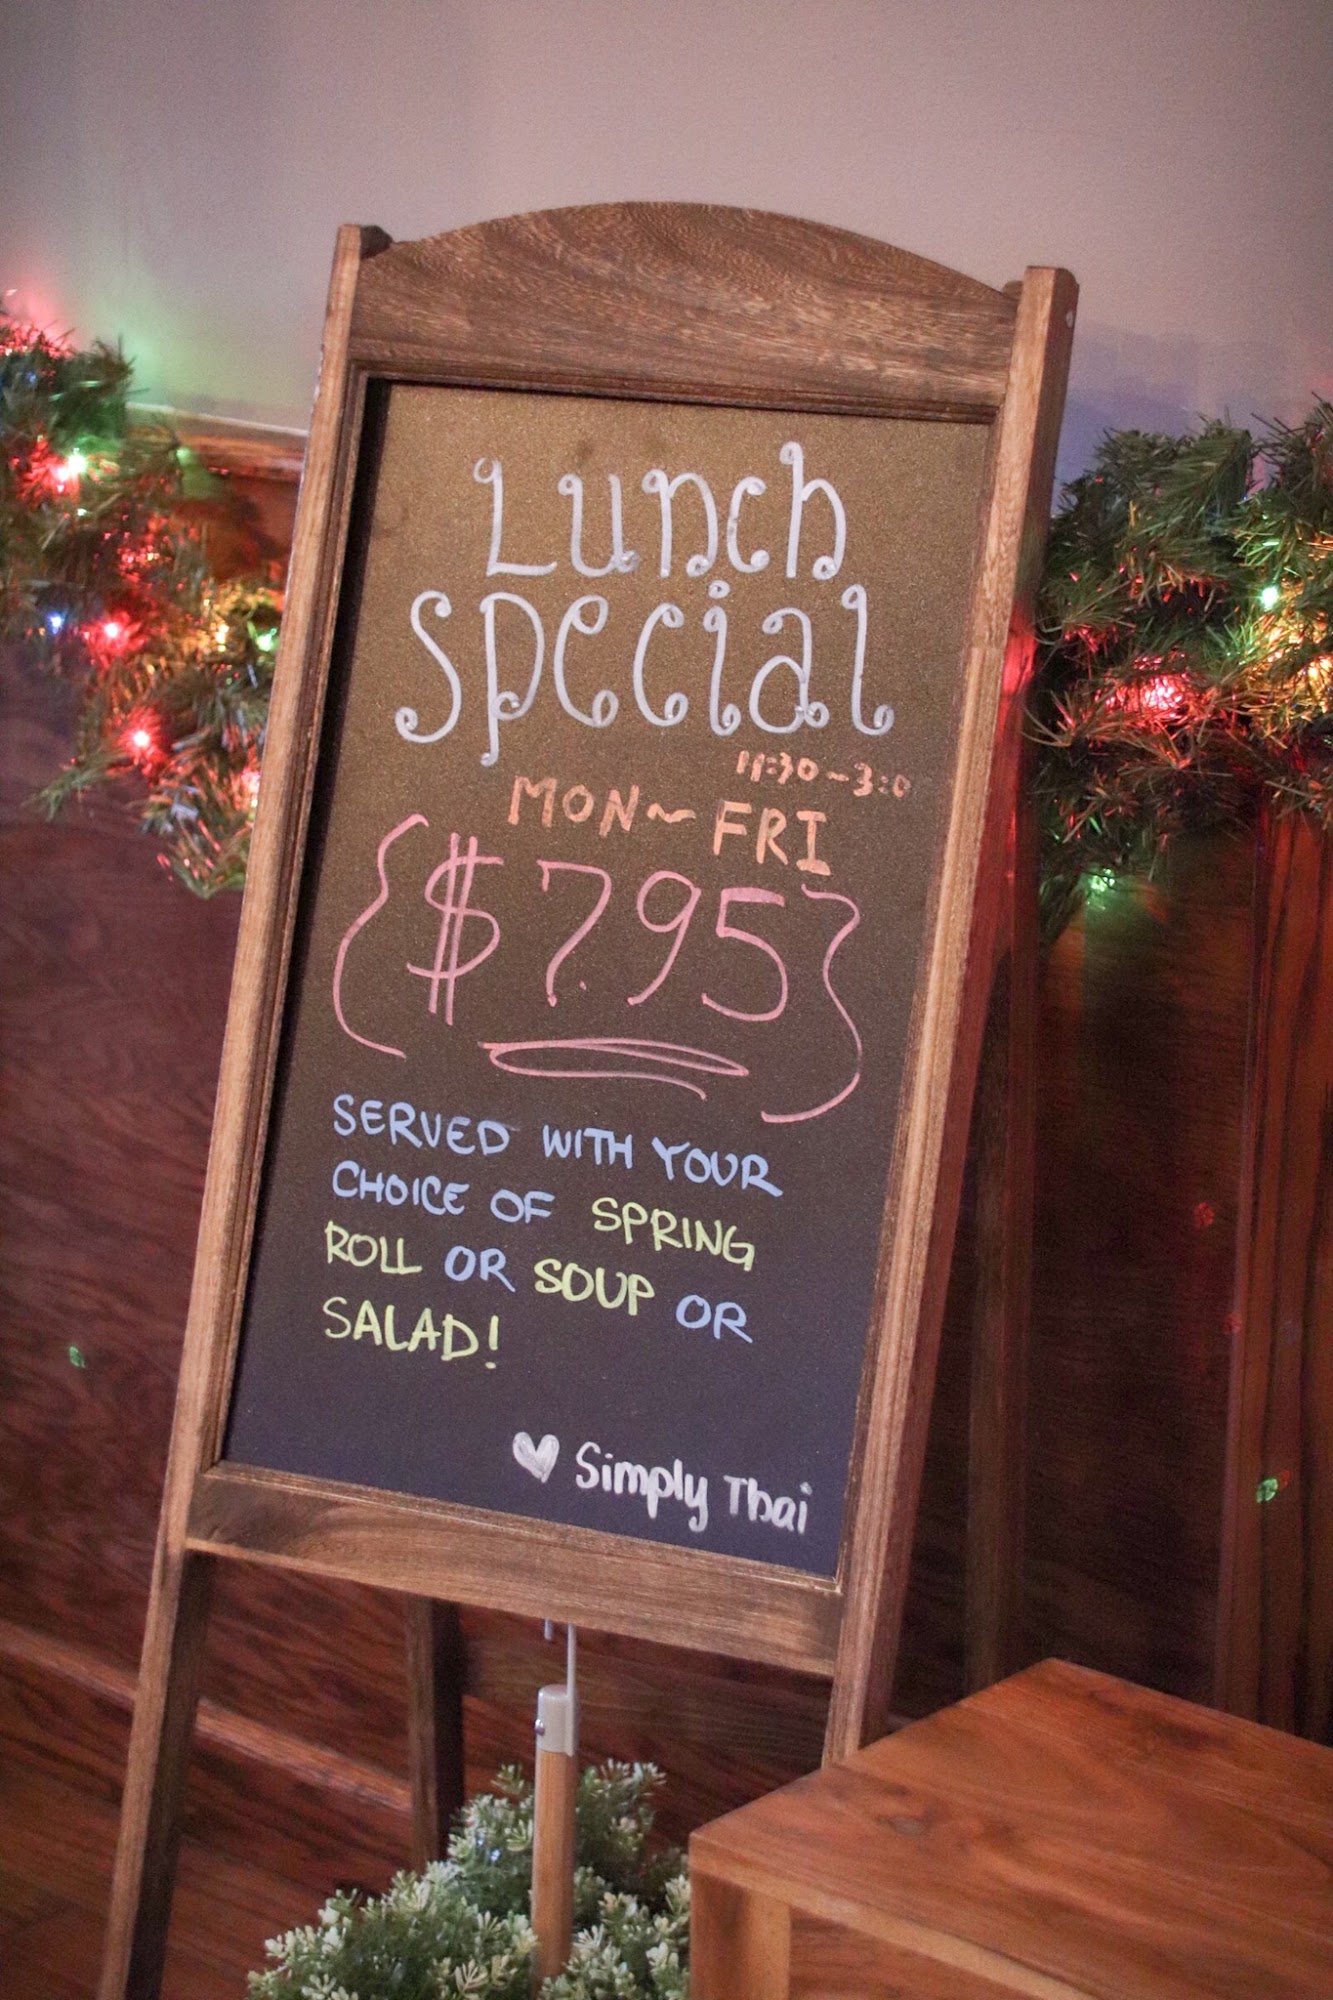 Lunch
Special
11:30~3:0
MON~FRI
{$7.95}
SERVED WITH YOUR
CHOICE OF SPRING
ROLL OR SOUP OR
SALAD!
♥ Simply Thai